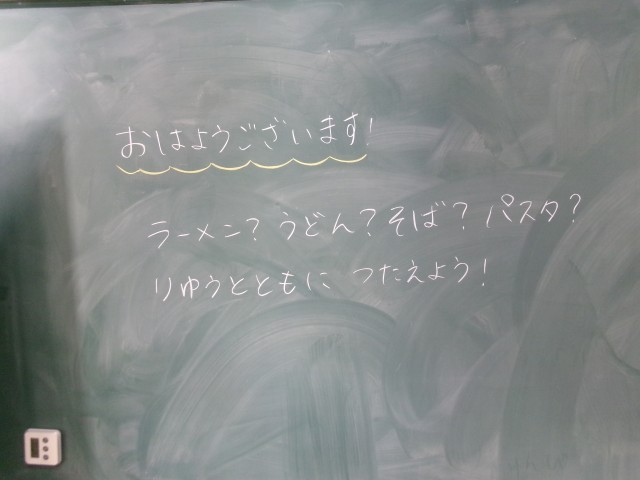 おはようございます!
ラーメン?うどん?そば?パスタ?
りゆうとともに つたえよう!